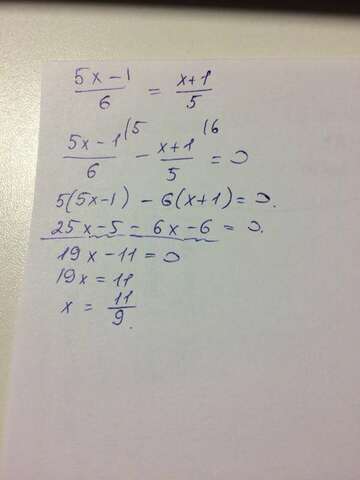 5x-1/6 = x+1/5
5x-1/6 (5 - x+1/5 (6 = 0
5(5x-1) - 6(x+1) = 0.
25x-5-6x-6 = 0.
19x-11 = 0
19x = 11
x = 11/9.